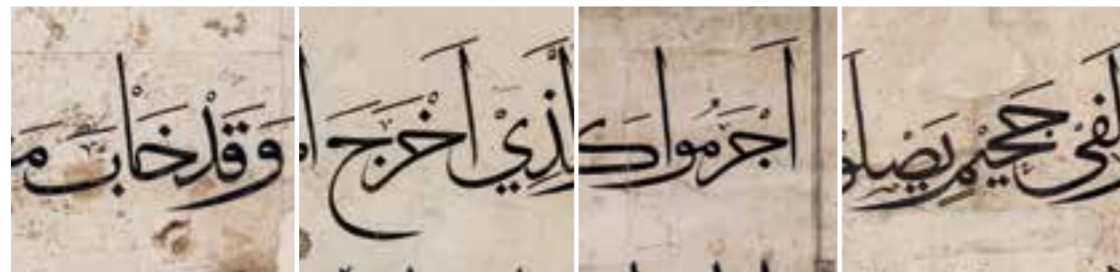 لَفِي جَحِيْمٍ يَصْلَو
اَجْرَمُوا كَ
لَّذِيْ اَخْرَجَ
وَقَدْ خَابَ مَ